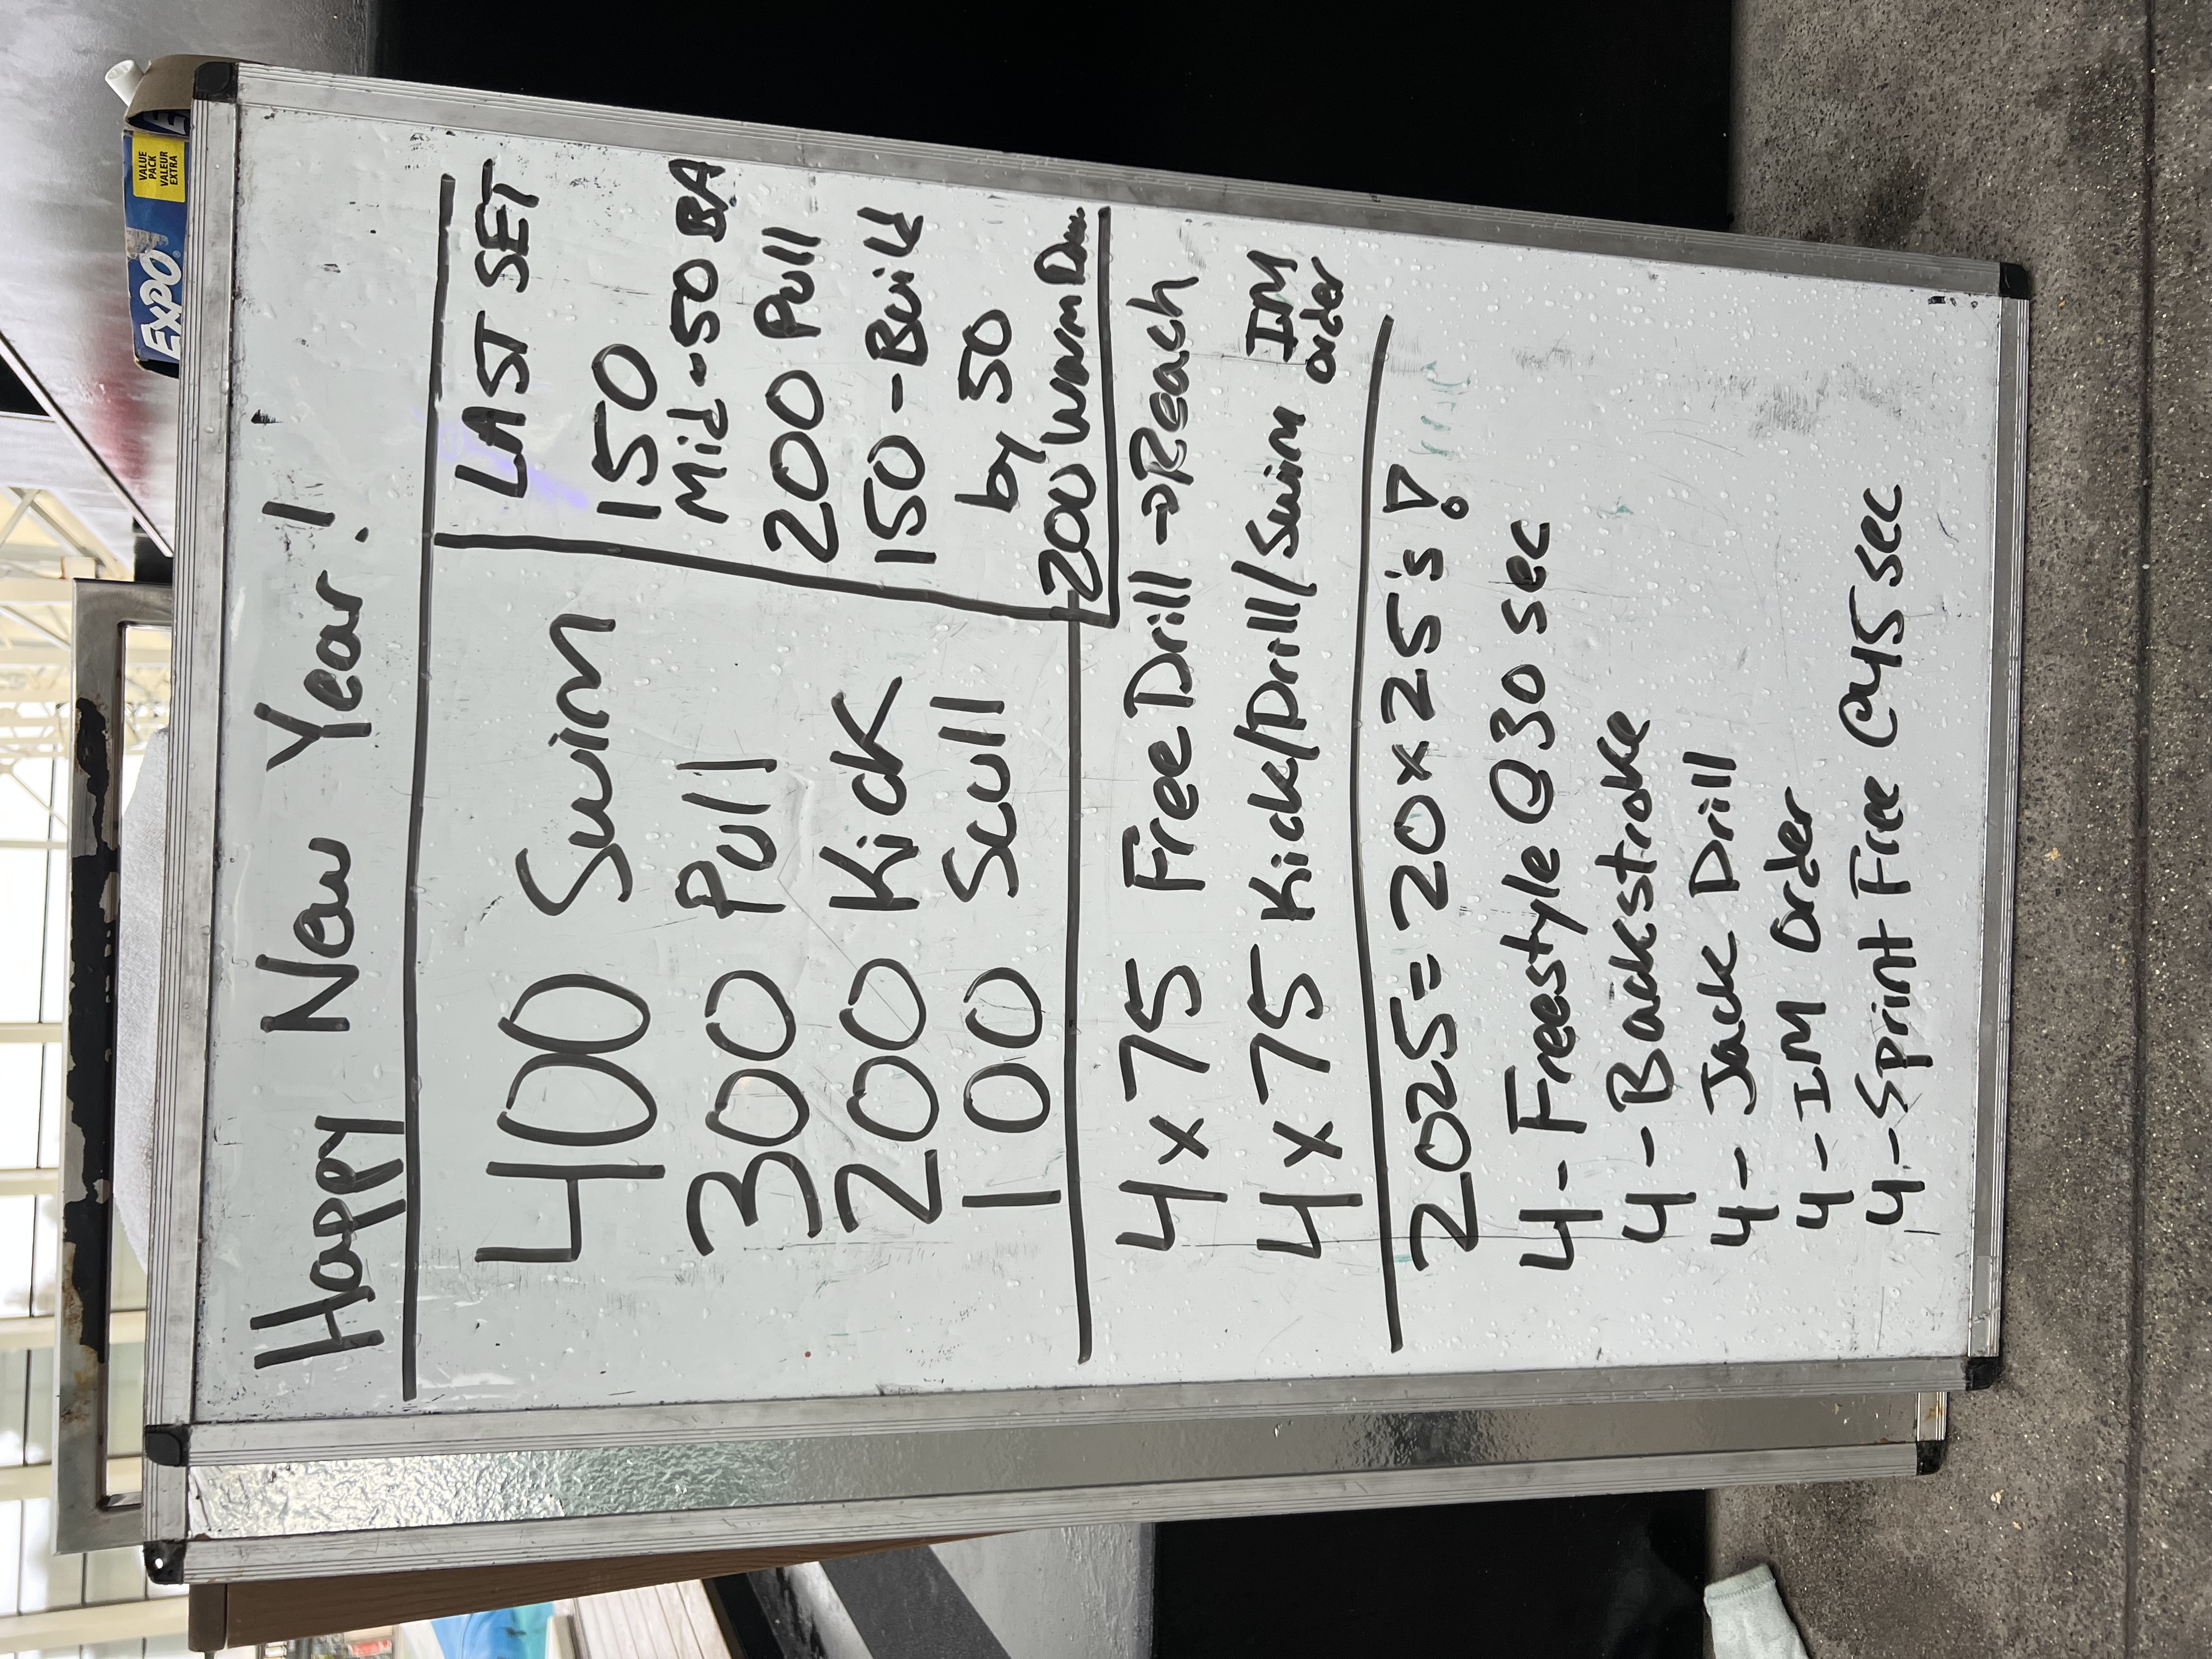 Happy New Year!
400 Swim
300 Pull
200 Kick
100 Scull
LAST SET
150
Mid-50 BA
200 Pull
150-Build
by 50
200 Warm Down
4x75 Free Drill →Reach
4x75 Kick/Drill/Swim IM
order
2025=20x25's!
4-Freestyle @30 sec
4-Backstroke
4-Jack Drill
4-IM Order
4-Sprint Free @45 sec
EXPO®
VALUE
PACK
VALEUR
EXTRA